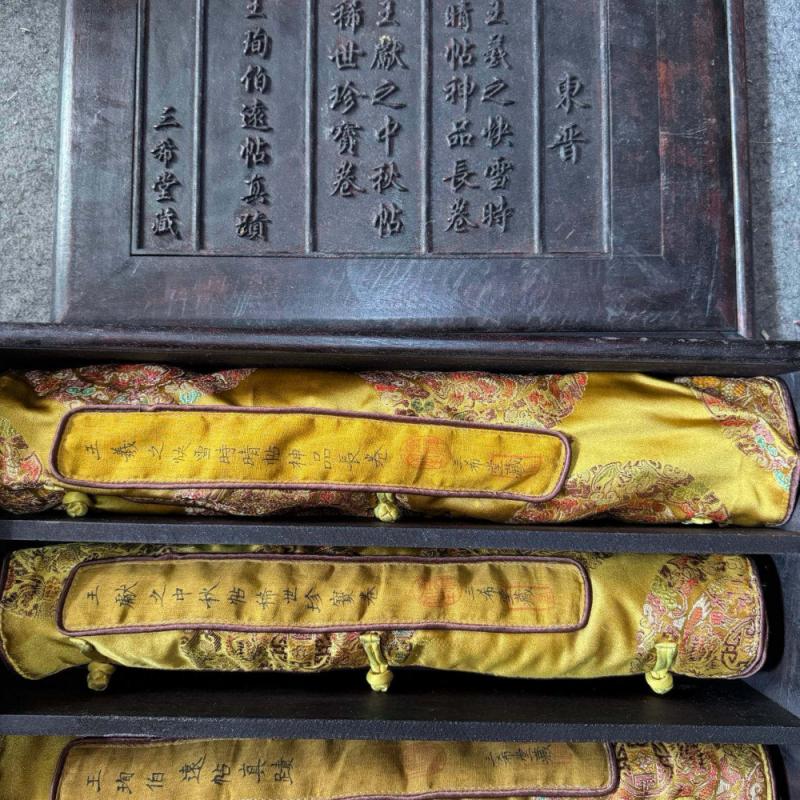 東晋
王羲之快雪時
晴帖神品長卷
王獻之中秋帖
稀世珍寳卷
王珣伯遠帖真蹟
三希堂藏
王羲之快雪時晴帖神品長卷
三希堂藏
王獻之中秋帖稀世珍寳卷
三希堂藏
王珣伯遠帖真蹟
三希堂藏